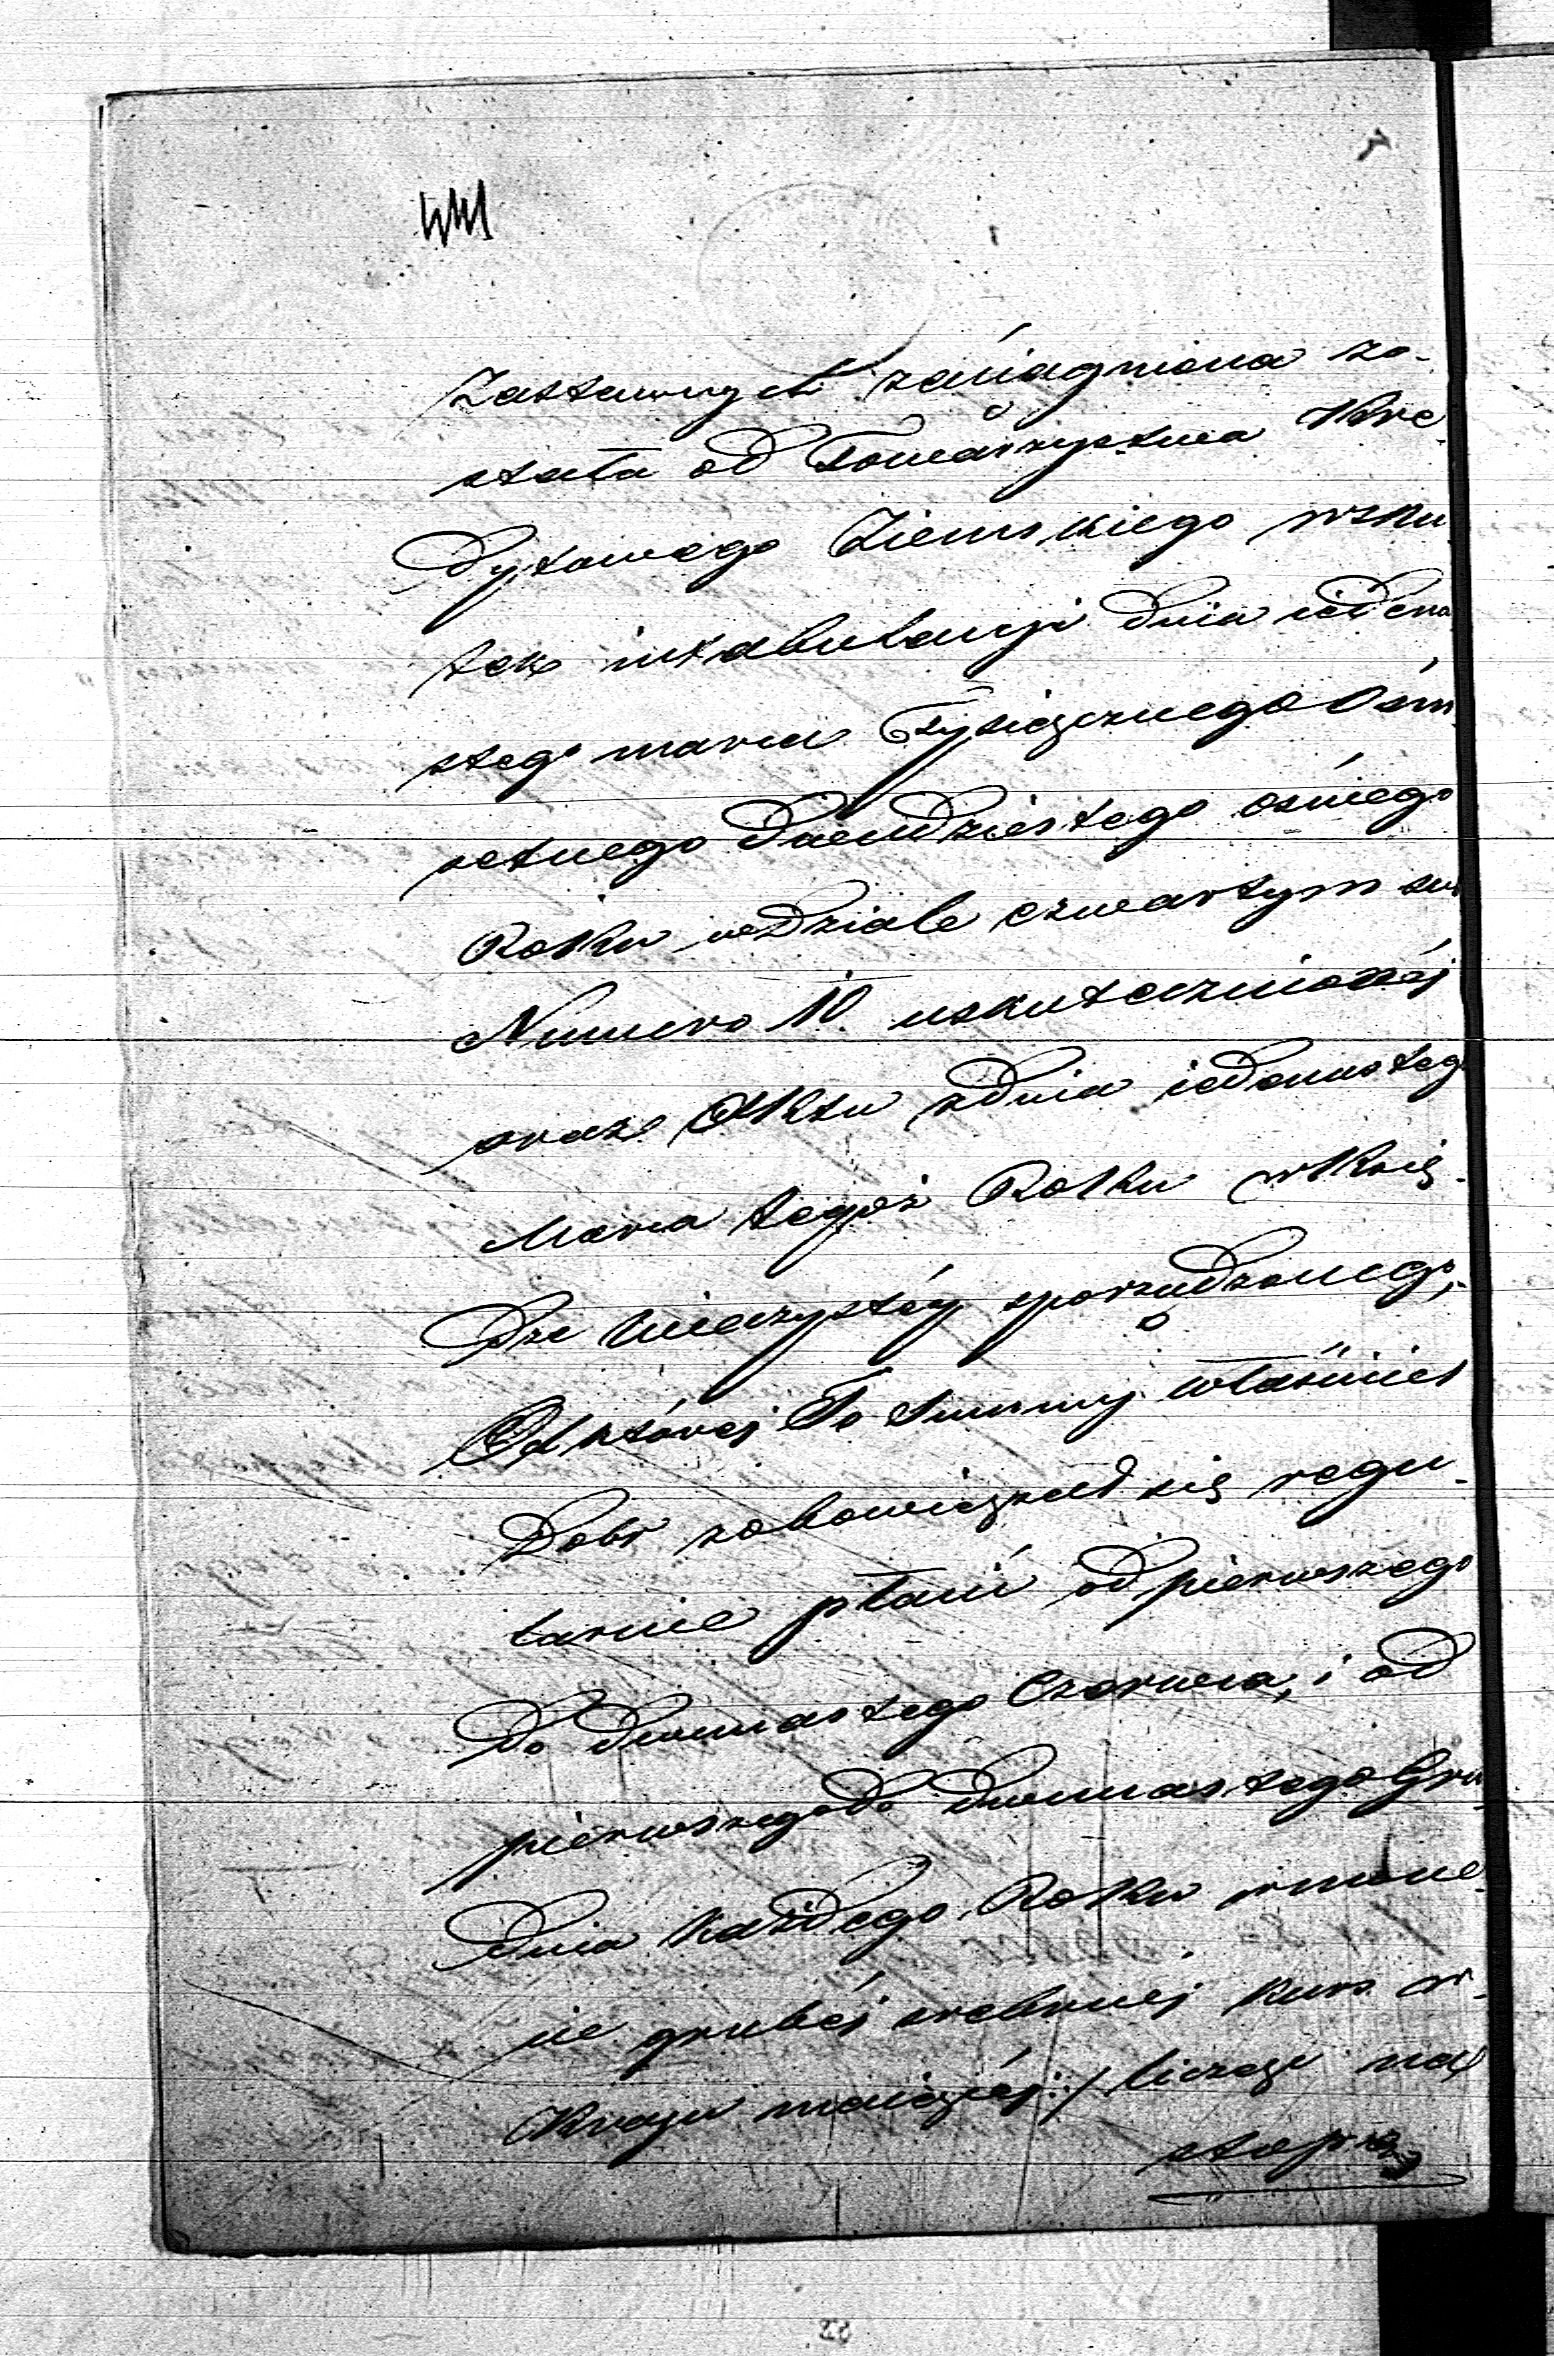 Zastawnych zaciągniona zo-
stała od Towarzystwa Kre-
dytowego Ziemskiego wsku-
tek intabulacyi dnia iedena-
stego marca Tysiącznego Ośm-
setnego dwudziestego ósmego
Roku wdziale czwartym sub
Numero 10. uskutecznionéj
oraz Aktu zdnia iedenastego
Marca tegoż Roku wksię-
dze wieczystéj sporządzonego,
Od któréj To Summy właściciel
Dobr zobowiązał się regu-
larnie płacić od pierwszego
do dwunastego Czerwca, i od
pierwszego do dwunastego Gru-
dnia każdego Roku wmone-
cie grubéj srebrnéj kurs w
Kraju maiącéj :/ licząc na
stopę
22